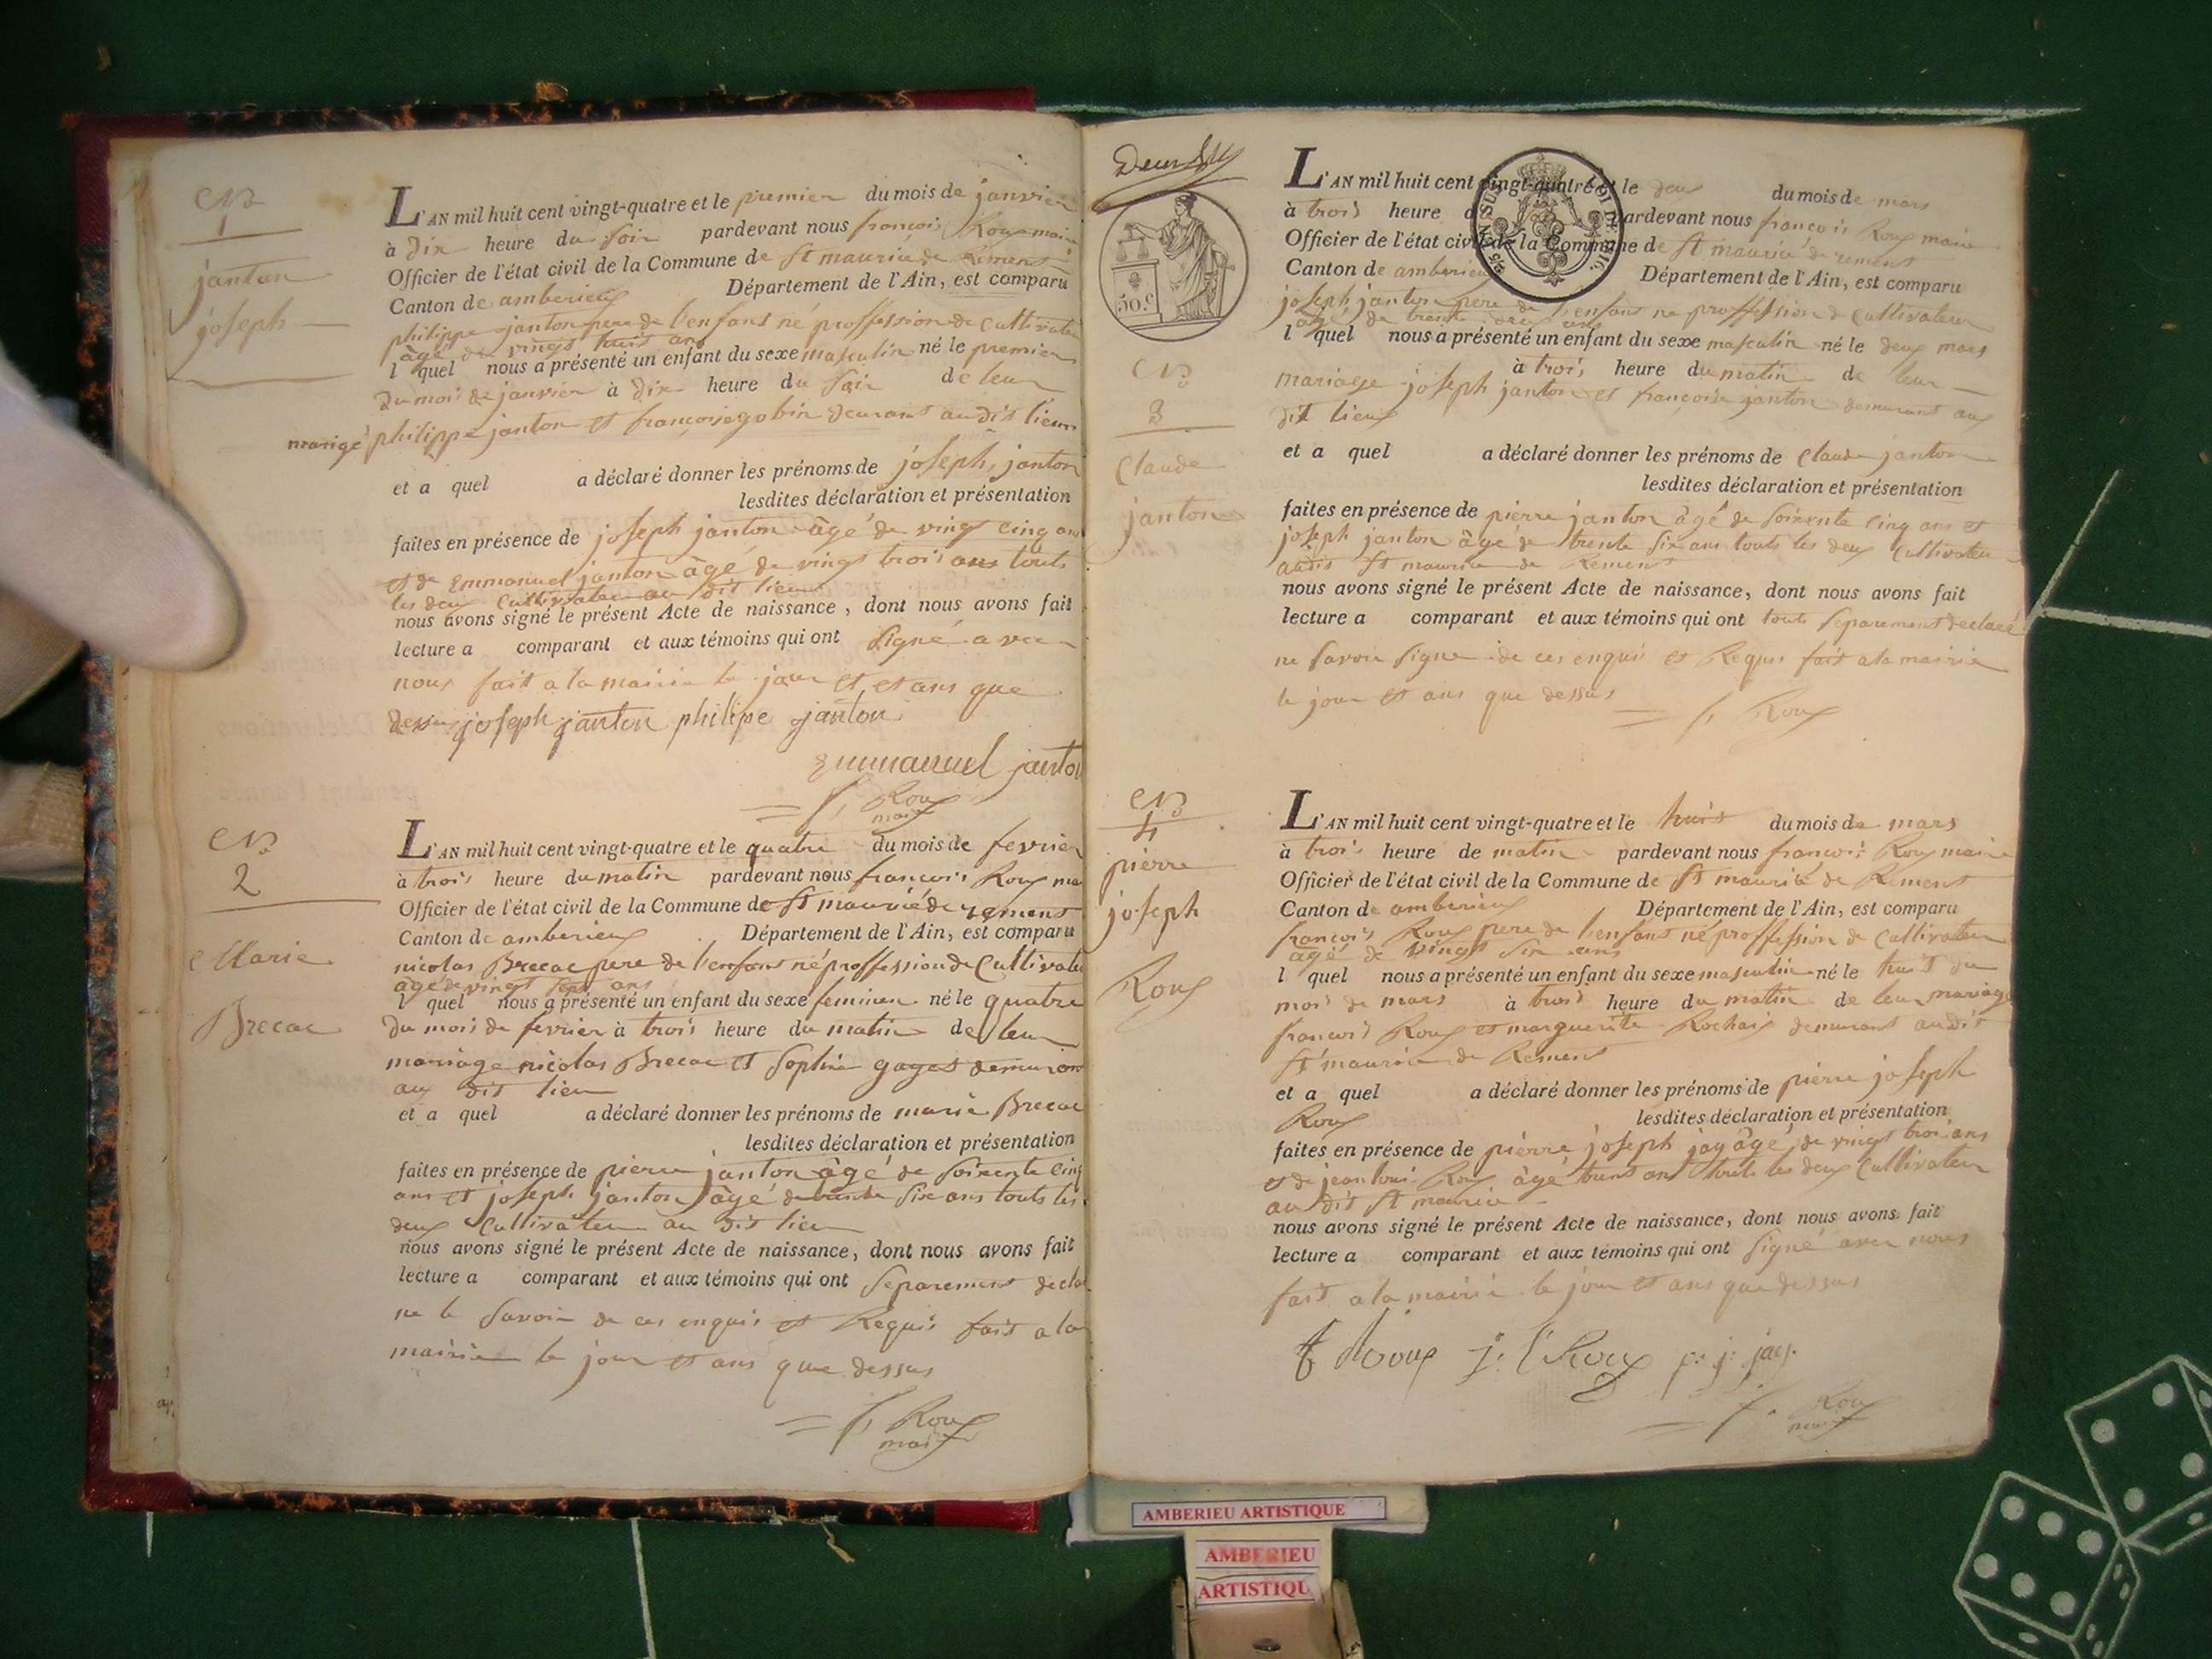 No
1
janton
joseph
L'AN mil huit cent vingt-quatre et le premier du mois de janvier
à dix heure du soir pardevant nous françois Roux maire
Officier de l'état civil de la Commune de St maurice de Rement
Canton de amberieux Département de l'Ain, est comparu
philippe janton pere de l'enfant né proffession de Cultivate
âgé de vingt huit ans
l quel nous a présenté un enfant du sexe masculin né le premier
du mois de janvier à dix heure du soir de leur
mariage philippe janton et françoise gobin deurant audit lieux
et a quel a déclaré donner les prénoms de joseph, janton
lesdites déclaration et présentation
faites en présence de joseph janton âgé de vingt cinq ans
et de Emmanuel janton âgé de vingt trois ans touts
les deux Cultivateur au dit lieux
nous avons signé le présent Acte de naissance, dont nous avons fait
lecture a comparant et aux témoins qui ont signé avec
nous fait a la mairie le jour et et ans que
dessus joseph janton philipe janton
Emmanuel janton
f, Roux
maire
No
2
Marie
Brecac
L'AN mil huit cent vingt-quatre et le quatre du mois de fevrier
à trois heure du matin pardevant nous francois Roux mai
Officier de l'état civil de la Commune de St maurice de rement
Canton de amberieux Département de l'Ain, est comparu
nicolas Brecac pere de l'enfant né proffession de Cultivate
âgé de vingt sept ans
l quel nous a présenté un enfant du sexe feminen né le quatre
du mois de fevrier à trois heure du matin de leur
mariage nicolas Brecac et Sophie gayet demurant
aux dit lieu
et a quel a déclaré donner les prénoms de marie Brecac
lesdites déclaration et présentation
faites en présence de pierre janton âgé de soixente cinq
ans et joseph janton âgé de trente six ans touts les
deux Cultivateur au dit lieu
nous avons signé le présent Acte de naissance, dont nous avons fait
lecture a comparant et aux témoins qui ont separement decla
ne le savoir de ces enquis et Requis fait a la
mairie le jour et ans que dessus
f, Roux
maire
Deux
50.c
L'AN mil huit cent vingt-quatre et le deux du mois de mars
à trois heure d pardevant nous françois Roux maire
Officier de l'état civil de la Commune de St maurice de rement
Canton de amberieux Département de l'Ain, est comparu
joseph janton pere de l'enfant né proffession de Cultivateur
âgé de trente ans
l quel nous a présenté un enfant du sexe masculin né le deux mars
à trois heure du matin de leur
mariage joseph janton et françoise janton demurant aux
dit lieux
et a quel a déclaré donner les prénoms de Claude janton
lesdites déclaration et présentation
faites en présence de pierre janton âgé de soixente cinq ans et
joseph janton âgé de trente six ans touts les deux Cultivateur
audit St maurice de Rement
nous avons signé le présent Acte de naissance, dont nous avons fait
lecture a comparant et aux témoins qui ont touts separement declaré
ne savoir signe de ces enquis et Requis fait a la mairie
le jour et ans que dessus
f, Roux
No
3
Claude
janton
No
4
pierre
joseph
Roux
L'AN mil huit cent vingt-quatre et le huit du mois de mars
à trois heure de matin pardevant nous françois Roux maire
Officier de l'état civil de la Commune de St maurice de Rement
Canton de amberieux Département de l'Ain, est comparu
françois Roux pere de l'enfant né proffession de Cultivateur
âgé de vingt six ans
l quel nous a présenté un enfant du sexe masculin né le huit du
mois de mars à trois heure du matin de leur mariage
françois Roux et marguerite Rochaix demurant audit
St maurice de Rement
et a quel a déclaré donner les prénoms de pierre joseph
Roux lesdites déclaration et présentation
faites en présence de pierre joseph jay âgé de vingt trois ans
et de jean loui Roux âgé trent ans touts les deux Cultivateur
au dit St maurice
nous avons signé le présent Acte de naissance, dont nous avons fait
lecture a comparant et aux témoins qui ont signé avec nous
fait a la mairie le jour et ans que dessus
f Roux j: l Roux p: j: jay.
f. Roux
maire
AMBERIEU ARTISTIQUE
AMBERIEU
ARTISTIQU